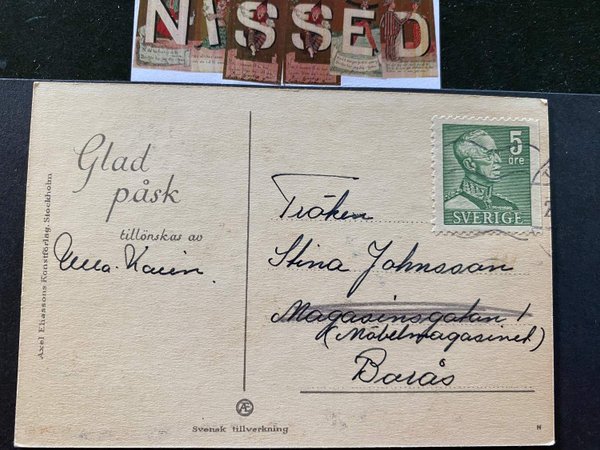 NISSED
Glad
påsk
tillönskas av
Ulla-Karin.
Axel Eliassons Konstförlag. Stockholm
5
öre
SVERIGE
Fröken
Stina Johnsson
Magasinsgatan 1
(Möbelmagasinet)
Borås
Æ
Svensk tillverkning
N